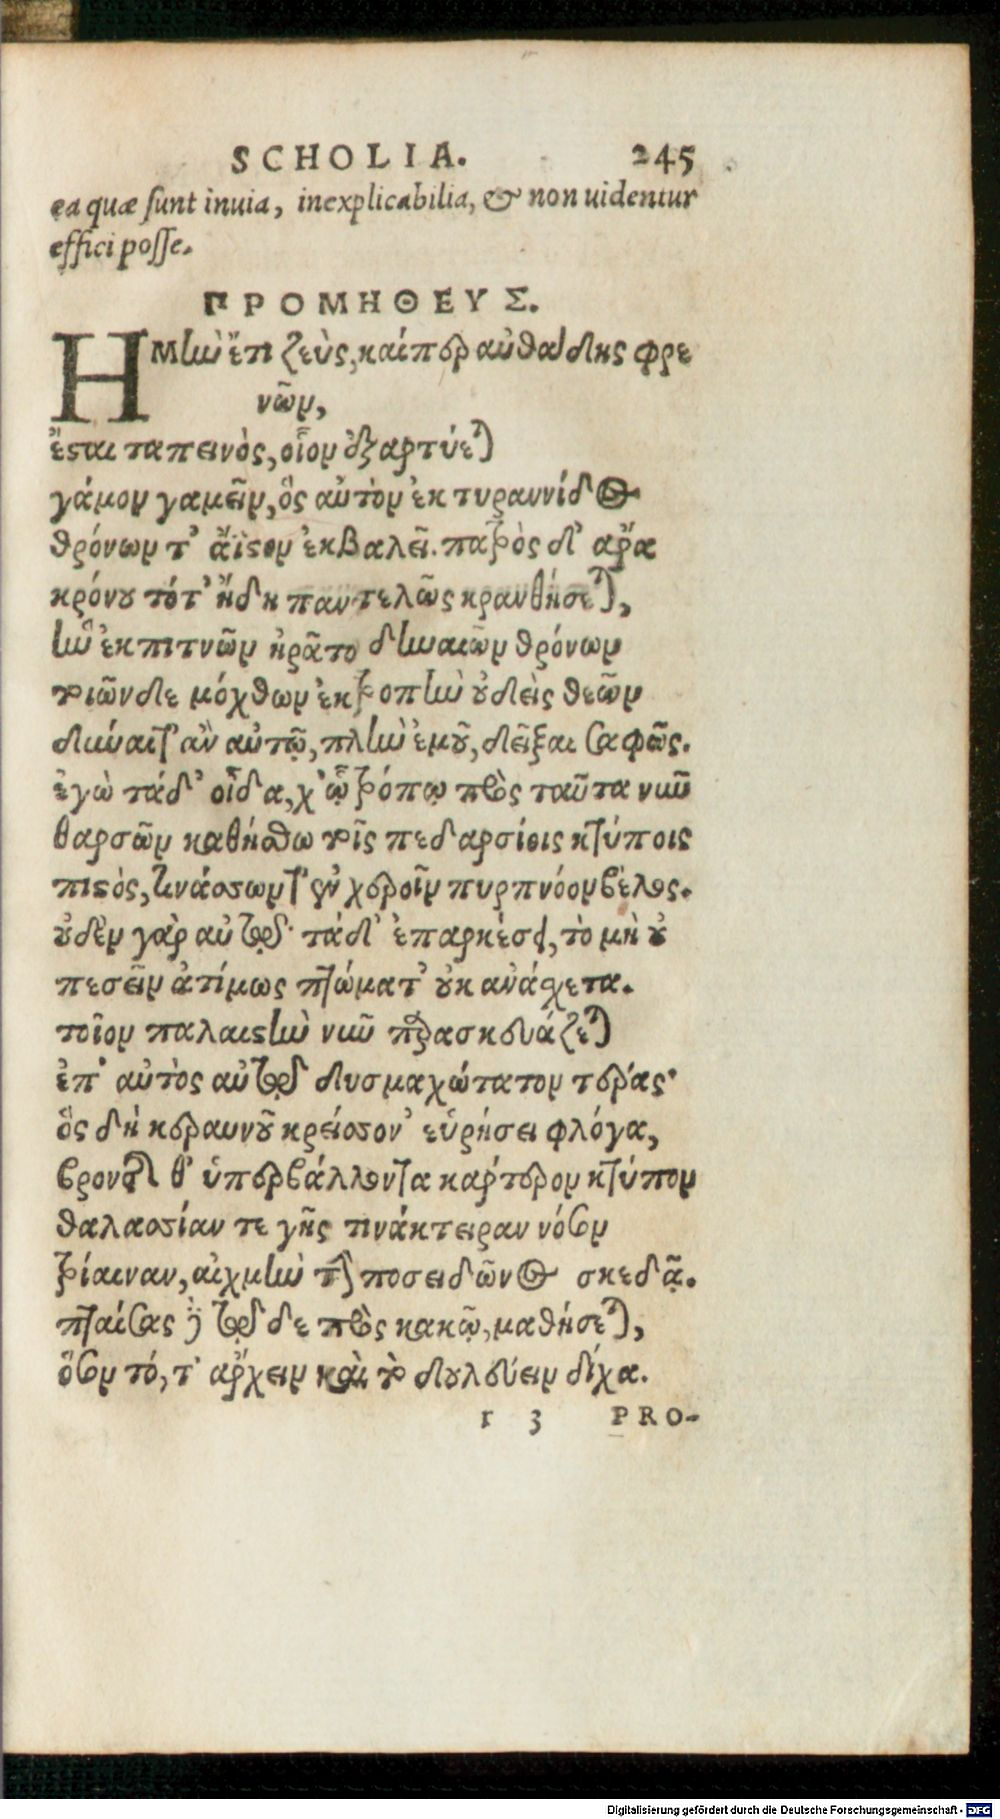 SCHOLIA. 245
ea quæ sunt inuia, inexplicabilia, & non uidentur
effici posse.
ΠΡΟΜΗΘΕΥΣ.
ΗΜὴν ἔτι ζεὺς, καίπερ αὐθάδης φρε
νῶν,
ἔσται ταπεινὸς, οἷον ἐξαρτύεται
γάμον γαμεῖν, ὃς αὐτὸν ἐκ τυραννίδος
θρόνων τ' ἄϊστον ἐκβαλεῖ. πατρὸς δ' ἀρὰ
κρόνου τότ' ἤδη παντελῶς κρανθήσεται,
ἣν ἐκπιτνῶν ἠρᾶτο δηναιῶν θρόνων
τοιῶνδε μόχθων ἐκτροπὴν οὐδεὶς θεῶν
δύναιτ' ἂν αὐτῷ, πλὴν ἐμοῦ, δεῖξαι σαφῶς.
ἐγὼ τάδ' οἶδα, χ' ᾧ τρόπῳ πρὸς ταῦτα νῦν
θαρσῶν καθήσθω τοῖς πεδαρσίοις κτύποις
πιστὸς, τινάσσων τ' ἐν χεροῖν πυρπνόον βέλος.
οὐδὲν γὰρ αὐτῷ τάδ' ἐπαρκέσει, τὸ μὴ οὐ
πεσεῖν ἀτίμως πτώματ' οὐκ ἀνάσχετα.
τοῖον παλαιστὴν νῦν παρασκευάζεται
ἐπ' αὐτὸς αὐτῷ δυσμαχώτατον τέρας·
ὃς δὴ κεραυνοῦ κρείσσον' εὑρήσει φλόγα,
βροντῆς θ' ὑπερβάλλοντα καρτερον κτύπον
θαλασσίαν τε γῆς τινάκτειραν νόσον
τρίαιναν, αἰχμὴν τὴν ποσειδῶνος σκεδᾷ.
πταίσας δε πρὸς κακῷ, μαθήσεται,
ὅσον τό, τ' ἄρχειν καὶ τὸ δουλεύειν δίχα.
r 3 PRO-
Digitalisierung gefördert durch die Deutsche Forschungsgemeinschaft - DFG